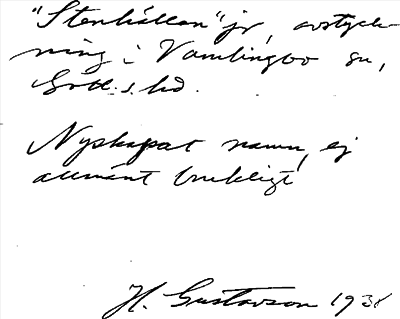 "Stenhällan" jr, avstyck-
ning i Vamlingbo sn,
Gotl:s hd.
Nyskapat namn, ej
allmänt brukligt
H. Gustavson 1931